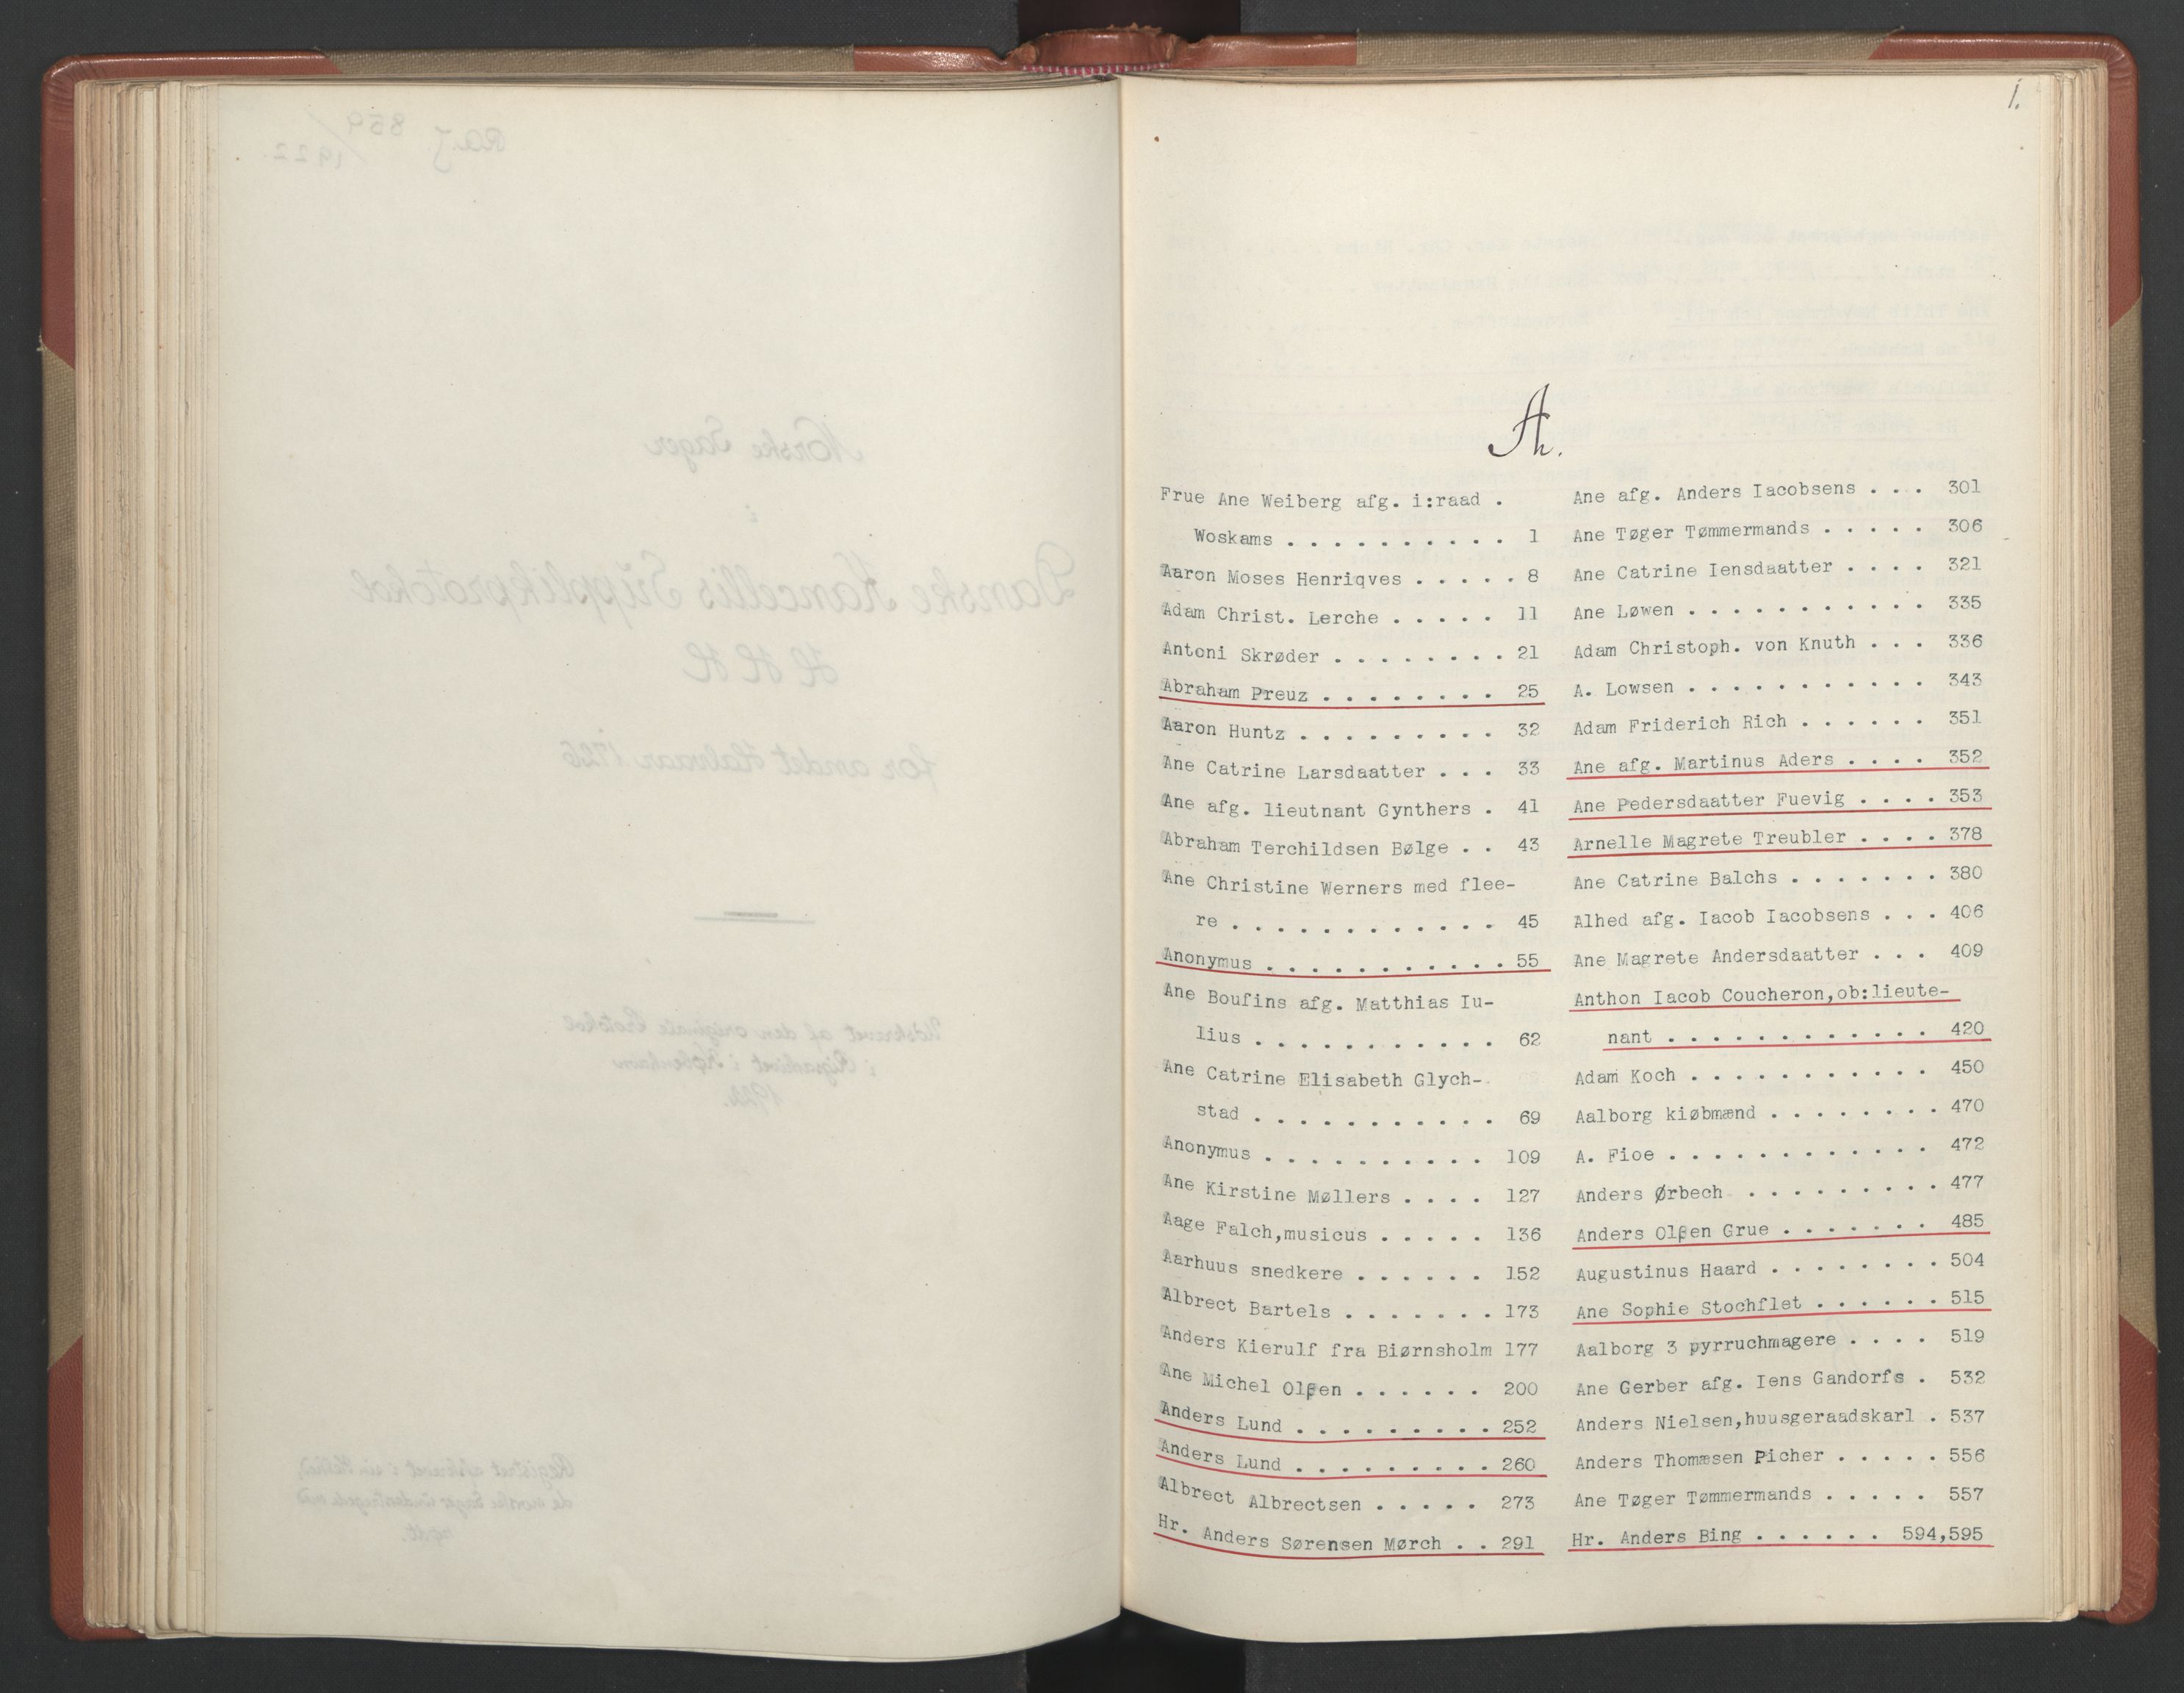 1.
A.
Frue Ane Weiberg afg. i:raad .
Woskams . . . . . . . . . . 1
Aaron Moses Henriqves . . . . . 8
Adam Christ. Lerche . . . . . 11
Antoni Skrøder . . . . . . . . 21
Abraham Preuz . . . . . . . . 25
Aaron Huntz . . . . . . . . . 32
Ane Catrine Larsdaatter . . . 33
Ane afg. lieutnant Gynthers . 41
Abraham Terchildsen Bølge . . 43
Ane Christine Werners med flee-
re . . . . . . . . . . . . 45
Anonymus . . . . . . . . . . . 55
Ane Boufins afg. Matthias Iu-
lius . . . . . . . . . . . 62
Ane Catrine Elisabeth Glych-
stad . . . . . . . . . . . 69
Anonymus . . . . . . . . . . 109
Ane Kirstine Møllers . . . . 127
Aage Falch,musicus . . . . . 136
Aarhuus snedkere . . . . . . 152
Albrect Bartels . . . . . . . 173
Anders Kierulf fra Biørnsholm 177
Ane Michel Olßen . . . . . . 200
Anders Lund . . . . . . . . . 252
Anders Lund . . . . . . . . . 260
Albrect Albrectsen . . . . . 273
Hr. Anders Sørensen Mørch . . 291
Ane afg. Anders Iacobsens . . . 301
Ane Tøger Tømmermands . . . . . 306
Ane Catrine Iensdaatter . . . . 321
Ane Løwen . . . . . . . . . . . 335
Adam Christoph. von Knuth . . . 336
A. Lowsen . . . . . . . . . . . 343
Adam Friderich Rich . . . . . . 351
Ane afg. Martinus Aders . . . . 352
Ane Pedersdaatter Fuevig . . . . 353
Arnelle Magrete Treubler . . . . 378
Ane Catrine Balchs . . . . . . . 380
Alhed afg. Iacob Iacobsens . . . 406
Ane Magrete Andersdaatter . . . 409
Anthon Iacob Coucheron,ob:lieute-
nant . . . . . . . . . . . . 420
Adam Koch . . . . . . . . . . . 450
Aalborg kiøbmænd . . . . . . . . 470
A. Fioe . . . . . . . . . . . . 472
Anders Ørbech . . . . . . . . . 477
Anders Olßen Grue . . . . . . . 485
Augustinus Haard . . . . . . . . 504
Ane Sophie Stochflet . . . . . . 515
Aalborg 3 pyrruchmagere . . . . 519
Ane Gerber afg. Iens Gandorfs . 532
Anders Nielsen,huusgeraadskarl . 537
Anders Thomæsen Picher . . . . . 556
Ane Tøger Tømmermands . . . . . 557
Hr. Anders Bing . . . . . . 594,595